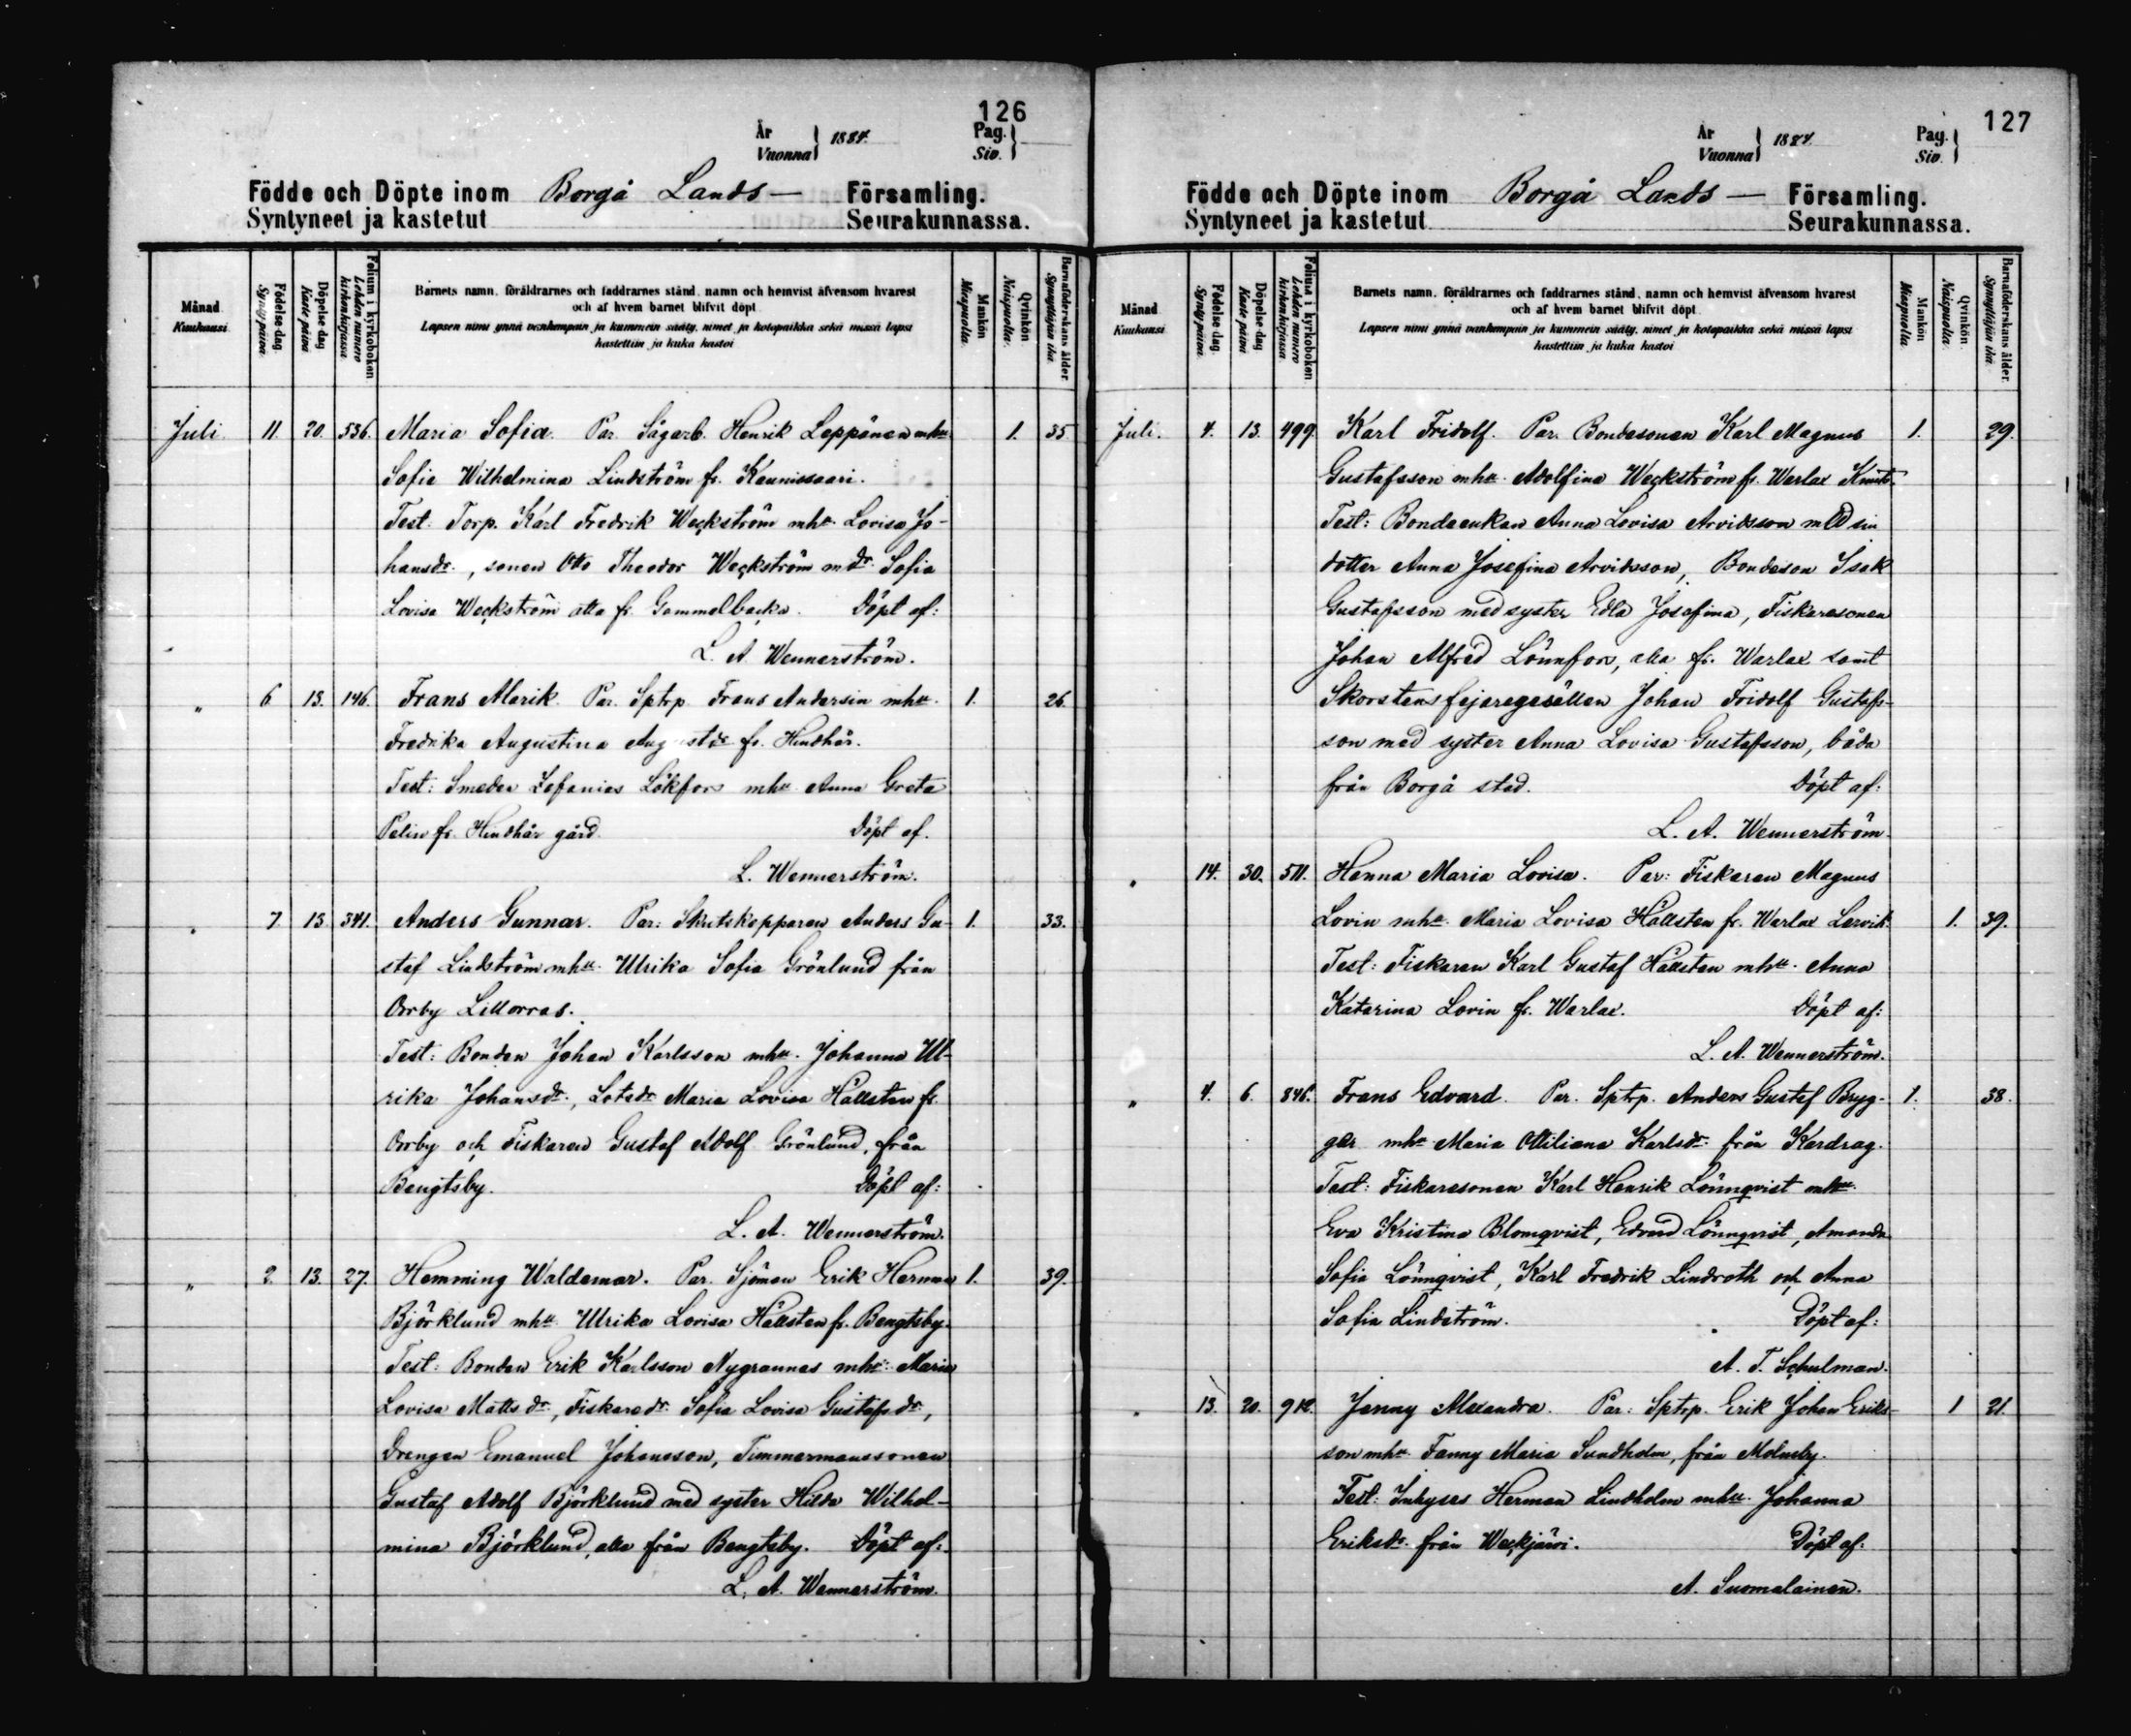 126
År
Vuonna
1884.
Pag.
Siv.
Födde och Döpte inom Borgå Lands— Församling.
Syntyneet ja kastetut Seurakunnassa.
Månad
Kuukausi
Födelse-dag.
Syntypäivä.
Döpelse-dag
Kaste päivä
Folium i kyrkoboken
Lehden numero kirkonkirjassa
Barnets namn, föräldrarnes och faddrarnes stånd, namn och hemvist äfvensom hvarest
och af hvem barnet blifvit döpt
Lapsen nimi ynnä vanhempain ja kummein sääty, nimet ja kotopaikka sekä missä lapsi
kastettiin ja kuka kastoi
Mankön
Miespuolia.
Qvinkön
Naispuolia.
Barnaföderskans ålder.
Synnyttäjän ikä.
Juli 11. 20. 536. Maria Sofia. Par. Sågarb. Henrik Leppänen mhu 1. 35
Sofia Wilhelmina Lindström fr. Kaunissaari.
Test: Torp. Karl Fredrik Weckström mhu. Lovisa Jo-
hansdr., sonen Otto Theodor Weckström m dr. Sofia
Lovisa Weckström alla fr. Gammelbacka. Döpt af:
L. A. Wennerström.
" 6 13. 146. Frans Alarik. Par. Sptrp. Frans Andersin mhu. 1. 26.
Fredrika Augustina Augustdr fr. Hindhår.
Test: Smeden Zefanias Lökfors mhu Anna Greta
Pelin fr. Hindhår gård. Döpt af.
L. Wennerström.
" 7 13 341. Anders Gunnar. Par: Skutskepparen Anders Gu- 1. 33.
staf Lindström mhu. Ulrika Sofia Grönlund från
Orrby Lillorras.
Test: Bonden Johan Karlsson mhu. Johanna Ul-
rika Johansdr., Lotsdr Maria Lovisa Hällsten fr.
Orrby och Fiskaren Gustaf Adolf Grönlund, från
Bengtsby. Döpt af:
L. A. Wennerström.
" 2. 13. 27. Hemming Waldemar. Par. Sjöman Erik Herman 1. 39.
Björklund mhu Ulrika Lovisa Hällsten fr. Bengtsby.
Test: Bonden Erik Karlsson Nygrannas mhu: Maria
Lovisa Matts dr, Fiskaredr Sofia Lovisa Gustafsdr,
Drengen Emanuel Johansson, Timmermanssonen
Gustaf Adolf Björklund med syster Hilda Wilhel-
mina Björklund, alla från Bengtsby. Döpt af:
L. A. Wennerström.
127
År
Vuonna
1884.
Pag.
Siv.
Födde och Döpte inom Borgå Lands — Församling.
Syntyneet ja kastetut Seurakunnassa.
Månad
Kuukausi
Födelse-dag.
Syntypäivä.
Döpelse-dag
Kaste päivä
Folium i kyrkoboken
Lehden numero kirkonkirjassa
Barnets namn, föräldrarnes och faddrarnes stånd, namn och hemvist äfvensom hvarest
och af hvem barnet blifvit döpt
Lapsen nimi ynnä vanhempain ja kummein sääty, nimet ja kotopaikka sekä missä lapsi
kastettiin ja kuka kastoi
Mankön
Miespuolia.
Qvinkön
Naispuolia.
Barnaföderskans ålder.
Synnyttäjän ikä.
Juli. 4. 13. 499. Karl Fridolf. Par. Bondesonen Karl Magnus 1. 29.
Gustafsson mhu. Adolfina Weckström fr. Warlax Knuts.
Test: Bondeenkan Anna Lovisa Arvidsson med sin
dotter Anna Josefina Arvidsson, Bondeson Isak
Gustafsson med syster Edla Josefina, Fiskaresonen
Johan Alfred Lönnfors, alla fr. Warlax samt
Skorstensfejaregesällen Johan Fridolf Gustafs-
son med syster Anna Lovisa Gustafsson, båda
från Borgå stad. Döpt af:
L. A. Wennerström.
" 14. 30. 511. Hanna Maria Lovisa. Par: Fiskaren Magnus
Lovin mhu. Maria Lovisa Hällsten fr. Warlax Lervik. 1. 39.
Test: Fiskaren Karl Gustaf Hällsten mhu. Anna
Katarina Lovin fr. Warlax. Döpt af:
L. A. Wennerström.
" 4. 6. 846. Frans Edvard. Par. Sptrp. Anders Gustaf Bryg- 1. 38.
gar mhu Maria Ottiliana Karlsdr. från Kardrag.
Test: Fiskaresonen Karl Henrik Lönnqvist mhu.
Eva Kristina Blomqvist, Edvard Lönnqvist, Amanda
Sofia Lönnqvist, Karl Fredrik Lindroth och Anna
Sofia Lindström. Döpt af:
A. T. Schulman.
" 13. 20. 912. Jenny Alexandra. Par: Sptrp. Erik Johan Eriks- 1 21.
son mhu. Fanny Maria Sundholm, från Molnby.
Test: Inhyses Herman Lindholm mhu. Johanna
Eriksdr. från Weckjärvi. Döpt af:
A. Suomalainen.